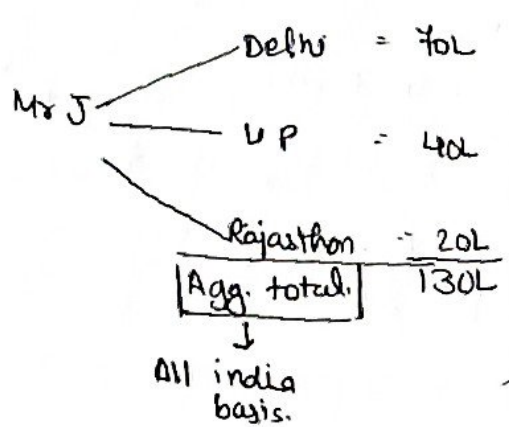 Delhi = 70L
Mr J
UP = 40L
Rajasthon - 20L
Agg. total. 130L
All india
basis.